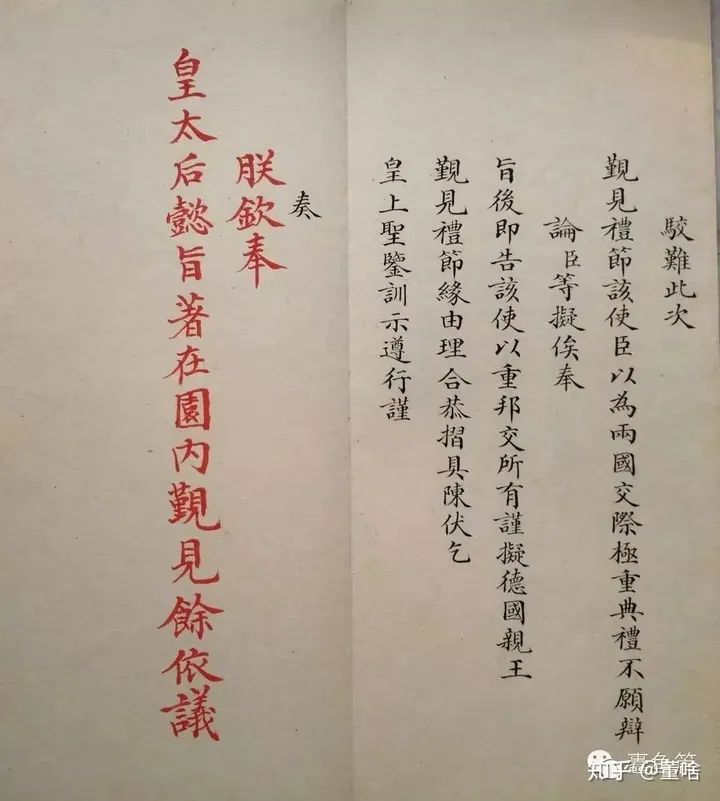 駁難此次
覲見禮節該使臣以為兩國交際極重典禮不願辯
論臣等擬俟奉
旨後即告該使以重邦交所有謹擬德國親王
覲見禮節緣由理合恭摺具陳伏乞
皇上聖鑒訓示遵行謹
奏
朕欽奉
皇太后懿旨著在園內覲見餘依議
知乎 @董啥